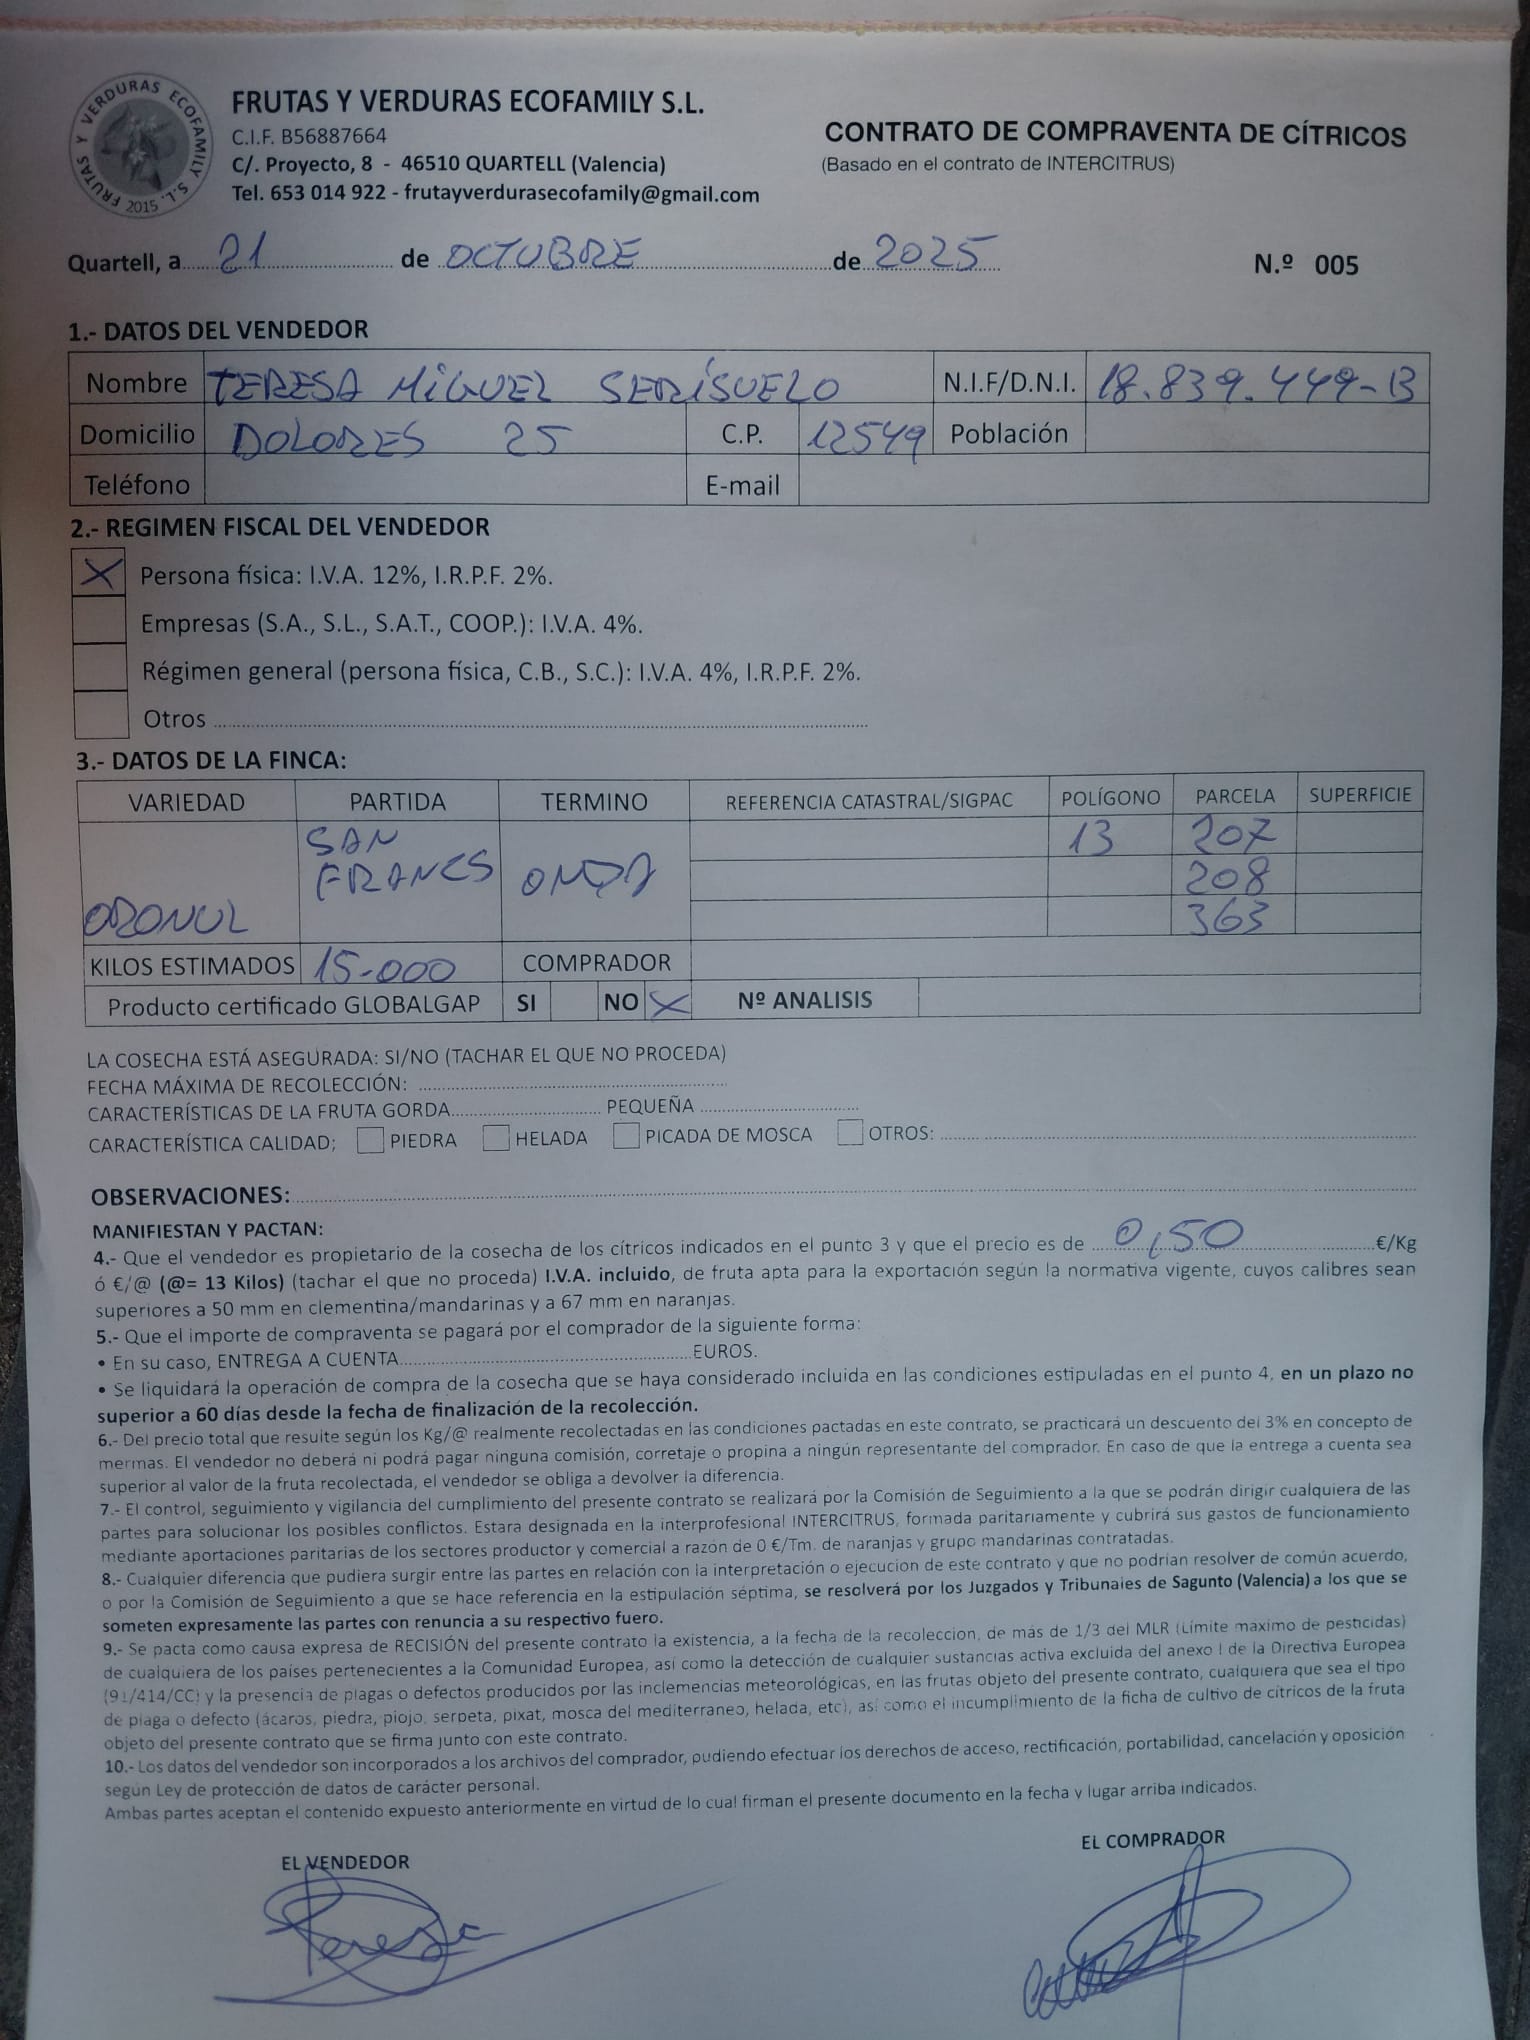 FRUTAS Y VERDURAS ECOFAMILY S.L. 2015
FRUTAS Y VERDURAS ECOFAMILY S.L.
C.I.F. B56887664
C/. Proyecto, 8 - 46510 QUARTELL (Valencia)
Tel. 653 014 922 - frutayverdurasecofamily@gmail.com
CONTRATO DE COMPRAVENTA DE CÍTRICOS
(Basado en el contrato de INTERCITRUS)
Quartell, a 21 de OCTUBRE de 2025 N.º 005
1.- DATOS DEL VENDEDOR
Nombre TERESA MIGUEL SERISUELO N.I.F/D.N.I. 18.839.449-B
Domicilio DOLORES 25 C.P. 12549 Población
Teléfono E-mail
2.- REGIMEN FISCAL DEL VENDEDOR
X Persona física: I.V.A. 12%, I.R.P.F. 2%.
Empresas (S.A., S.L., S.A.T., COOP.): I.V.A. 4%.
Régimen general (persona física, C.B., S.C.): I.V.A. 4%, I.R.P.F. 2%.
Otros
3.- DATOS DE LA FINCA:
VARIEDAD PARTIDA TERMINO REFERENCIA CATASTRAL/SIGPAC POLÍGONO PARCELA SUPERFICIE
SAN 13 207
FRANCS ONDA 208
ORONUL 363
KILOS ESTIMADOS 15.000 COMPRADOR
Producto certificado GLOBALGAP SI NO X Nº ANALISIS
LA COSECHA ESTÁ ASEGURADA: SI/NO (TACHAR EL QUE NO PROCEDA)
FECHA MÁXIMA DE RECOLECCIÓN:
CARACTERÍSTICAS DE LA FRUTA GORDA PEQUEÑA
CARACTERÍSTICA CALIDAD; PIEDRA HELADA PICADA DE MOSCA OTROS:
OBSERVACIONES:
MANIFIESTAN Y PACTAN:
4.- Que el vendedor es propietario de la cosecha de los cítricos indicados en el punto 3 y que el precio es de 0,50 €/Kg
ó €/@ (@= 13 Kilos) (tachar el que no proceda) I.V.A. incluido, de fruta apta para la exportación según la normativa vigente, cuyos calibres sean
superiores a 50 mm en clementina/mandarinas y a 67 mm en naranjas.
5.- Que el importe de compraventa se pagará por el comprador de la siguiente forma:
• En su caso, ENTREGA A CUENTA EUROS.
• Se liquidará la operación de compra de la cosecha que se haya considerado incluida en las condiciones estipuladas en el punto 4, en un plazo no
superior a 60 días desde la fecha de finalización de la recolección.
6.- Del precio total que resulte según los Kg/@ realmente recolectadas en las condiciones pactadas en este contrato, se practicará un descuento del 3% en concepto de
mermas. El vendedor no deberá ni podrá pagar ninguna comisión, corretaje o propina a ningún representante del comprador. En caso de que la entrega a cuenta sea
superior al valor de la fruta recolectada, el vendedor se obliga a devolver la diferencia.
7.- El control, seguimiento y vigilancia del cumplimiento del presente contrato se realizará por la Comisión de Seguimiento a la que se podrán dirigir cualquiera de las
partes para solucionar los posibles conflictos. Estara designada en la interprofesional INTERCITRUS, formada paritariamente y cubrirá sus gastos de funcionamiento
mediante aportaciones paritarias de los sectores productor y comercial a razón de 0 €/Tm. de naranjas y grupo mandarinas contratadas.
8.- Cualquier diferencia que pudiera surgir entre las partes en relación con la interpretación o ejecucion de este contrato y que no podrían resolver de común acuerdo,
o por la Comisión de Seguimiento a que se hace referencia en la estipulación séptima, se resolverá por los Juzgados y Tribunales de Sagunto (Valencia) a los que se
someten expresamente las partes con renuncia a su respectivo fuero.
9.- Se pacta como causa expresa de RECISIÓN del presente contrato la existencia, a la fecha de la recoleccion, de más de 1/3 del MLR (Límite máximo de pesticidas)
de cualquiera de los países pertenecientes a la Comunidad Europea, así como la detección de cualquier sustancias activa excluida del anexo I de la Directiva Europea
(91/414/CC) y la presencia de plagas o defectos producidos por las inclemencias meteorológicas, en las frutas objeto del presente contrato, cualquiera que sea el tipo
de plaga o defecto (ácaros, piedra, piojo, serpeta, pixat, mosca del mediterraneo, helada, etc), así como el incumplimiento de la ficha de cultivo de cítricos de la fruta
objeto del presente contrato que se firma junto con este contrato.
10.- Los datos del vendedor son incorporados a los archivos del comprador, pudiendo efectuar los derechos de acceso, rectificación, portabilidad, cancelación y oposición
según Ley de protección de datos de carácter personal.
Ambas partes aceptan el contenido expuesto anteriormente en virtud de lo cual firman el presente documento en la fecha y lugar arriba indicados.
EL VENDEDOR EL COMPRADOR
Teresa